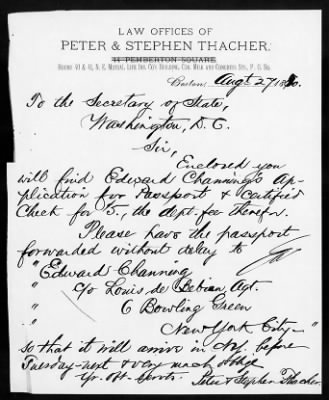 LAW OFFICES OF
PETER & STEPHEN THACHER.
44 PEMBERTON SQUARE.
ROOMS 40 & 41, N. E. MUTUAL LIFE INS. CO'S BUILDING, COR. MILK AND CONGRESS STS., P. O. SQ.
Boston, Augt 27 18
To the Secretary of State,
Washington, D. C.
Sir,
Enclosed you
will find Edward Channing's Ap-
plication for Passport & Certified
Check for 5., the dept. fee therefor.
Please have the passport
forwarded without delay to
"Edward Channing
" c/o Louis de Bebian Agt.
" 6 Bowling Green
" New York City —"
so that it will arrive in N.Y. before
Tuesday - next & very much oblige
Yr. Obt. Servts. Peter & Stephen Thacher